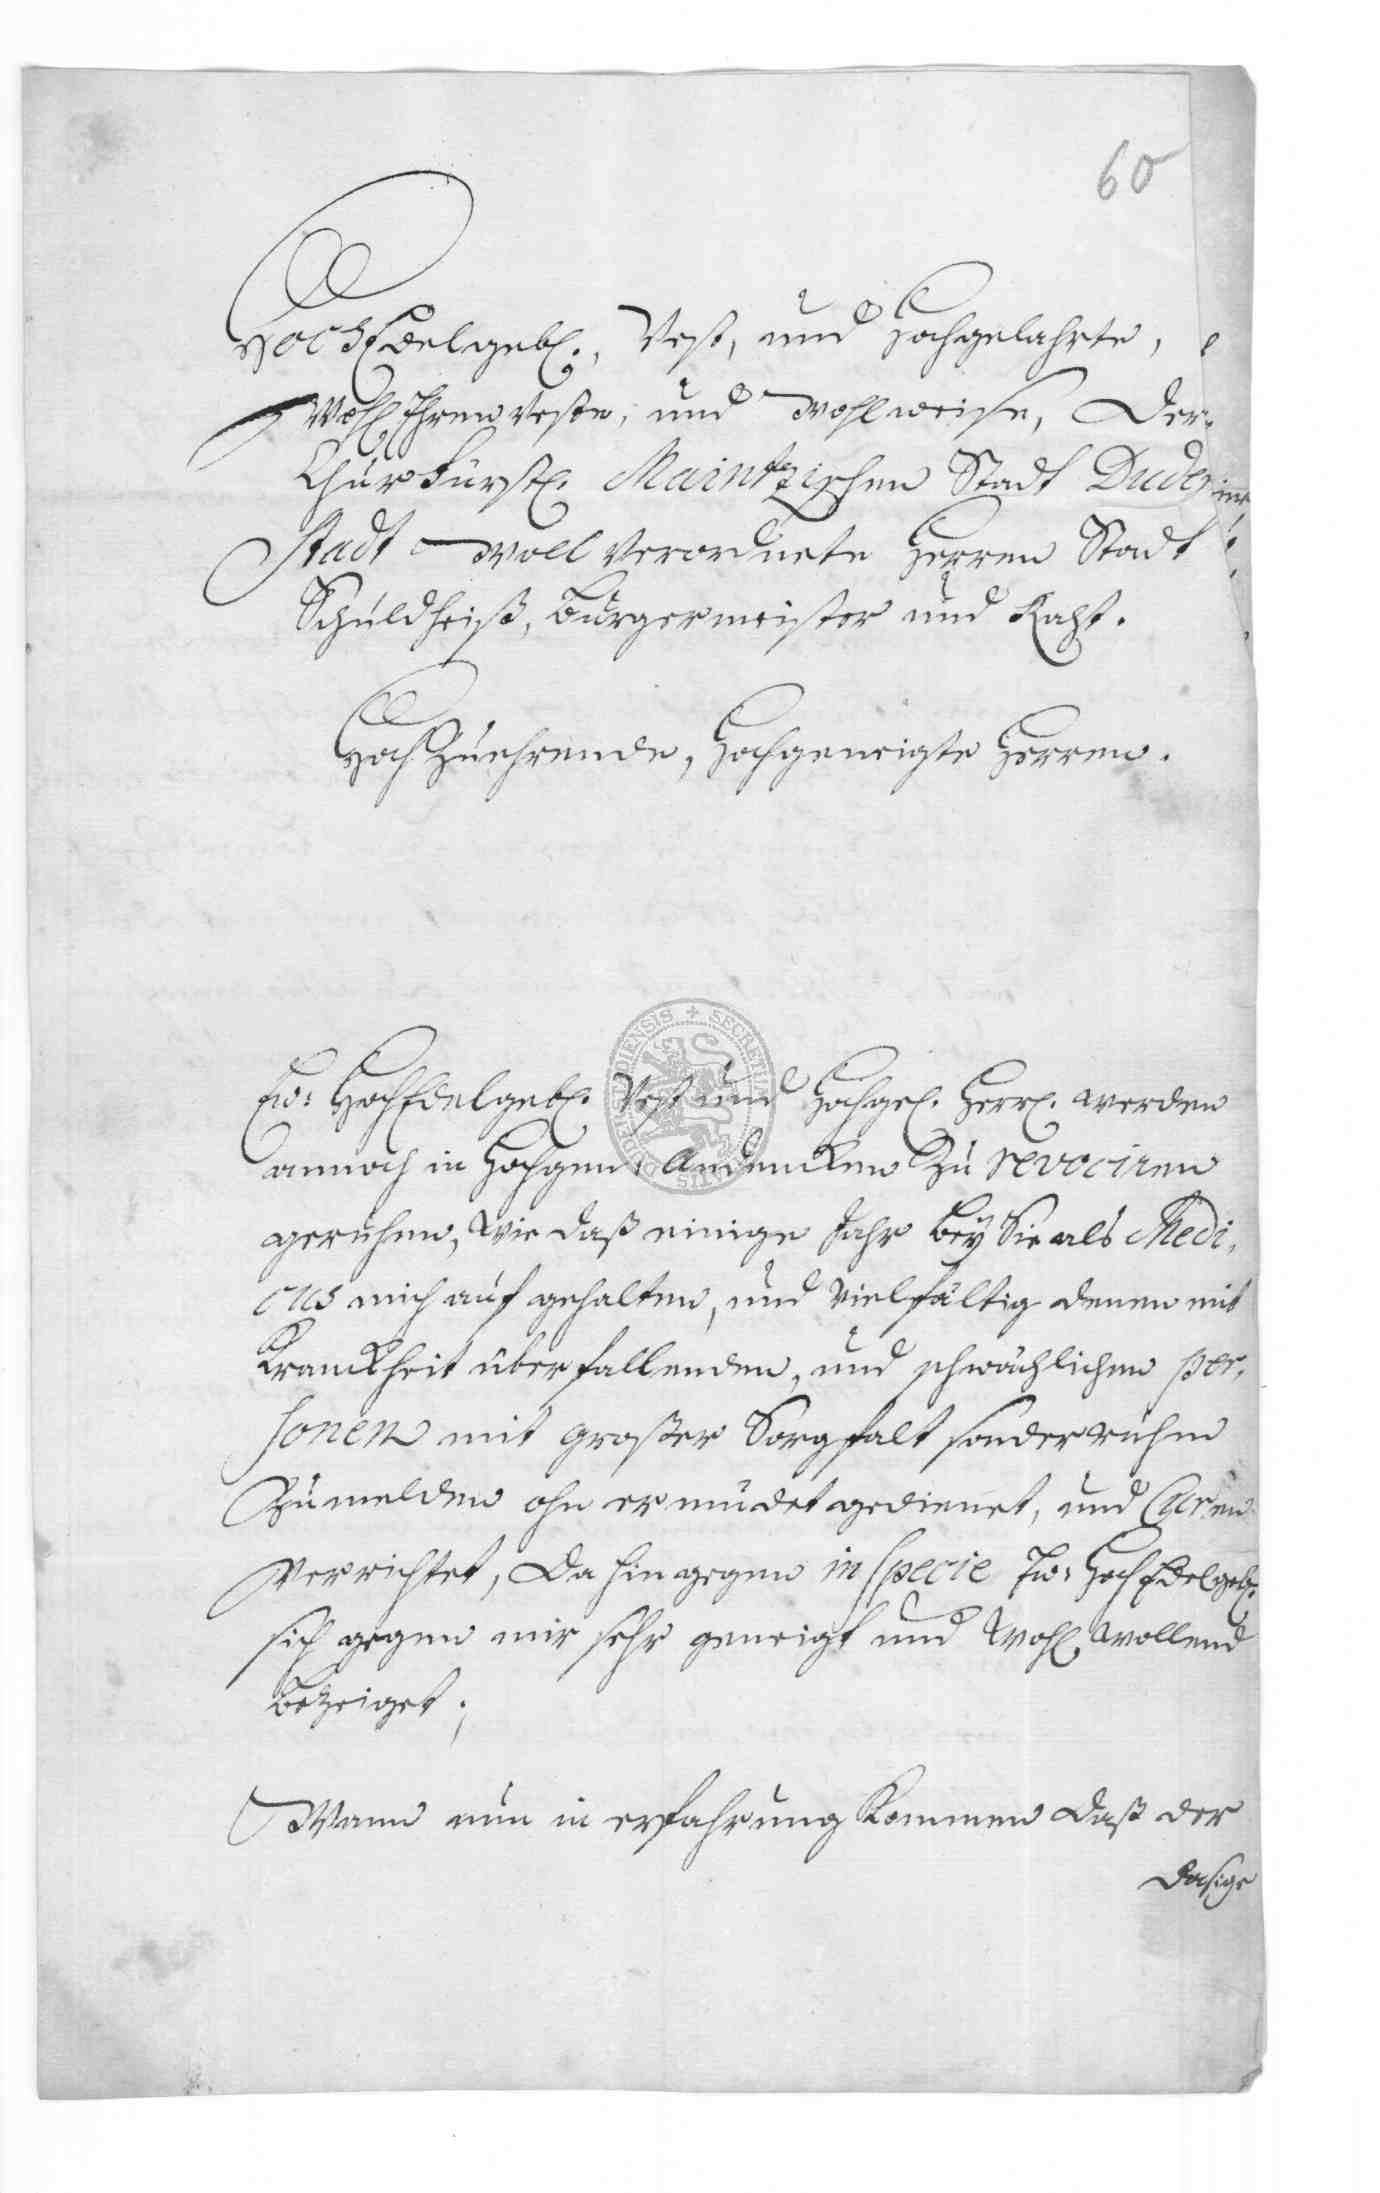 60
HochEdelgeb., Vest, und Hochgelahrte,
Wohl Ehrenveste, und wohlweise, Der
Chür Fürstl. Maintzischen Stadt Duder
Stadt woll Verordnete Herren Stadt
Schuldheiß, Bürgermeister und Raht.
Hoch Zuehrende, Hochgeneigte Herren.
SECRETUM
DUDERSTADIENSIS
Ew: HochEdelgeb. Vest und Hochgel. Herrl. werden
annoch in Hochgen. Andencken Zu revociren
geruhen, Wie daß einige Jahr bey Sie als Medi,
cus mich auf gehalten, und Vielfältig denen mit
Kranckheit überfallenden, und schwächlichen per,
sonen mit großer Sorgfalt sonder ruhm
Zu melden ohn ermüdet gedienet, und Curen
Verrichtet, Da hin gegen in specie Ew: HochEdelgeb.
sich gegen mir sehr geneigt und Wohl Wollend
Bezeiget;
Wann nun in erfahrung Kommen daß der
Dasige